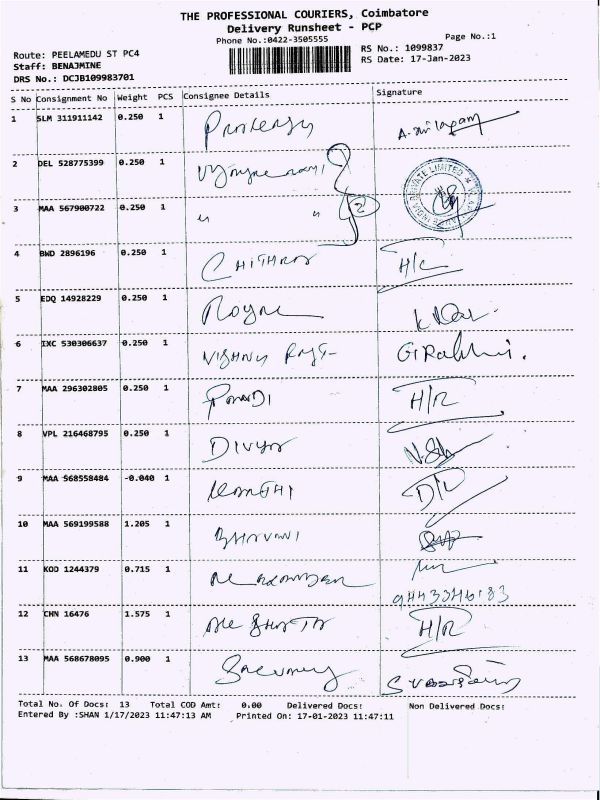 THE PROFESSIONAL COURIERS, Coimbatore
Delivery Runsheet - PCP
Phone No.:0422-3505555
Page No.:1
Route: PEELAMEDU ST PC4
RS No.: 1099837
Staff: BENAJMINE
RS Date: 17-Jan-2023
DRS No.: DCJB109983701
S No Consignment No Weight PCS Consignee Details Signature
1 SLM 311911142 0.250 1
2 DEL 528775399 0.250 1
3 MAA 567900722 0.250 1 " " 2
4 BWD 2896196 0.250 1 CHITHRA H/C
5 EDQ 14928229 0.250 1
6 IXC 530306637 0.250 1
7 MAA 296302805 0.250 1 H/R
8 VPL 216468795 0.250 1 DIVYA
9 MAA 568558484 -0.040 1
10 MAA 569199588 1.205 1 BHAVANI
11 KOD 1244379 0.715 1
12 CHN 16476 1.575 1 H/R
13 MAA 568678095 0.900 1
Total No. Of Docs: 13 Total COD Amt: 0.00 Delivered Docs: Non Delivered Docs:
Entered By :SHAN 1/17/2023 11:47:13 AM Printed On: 17-01-2023 11:47:11